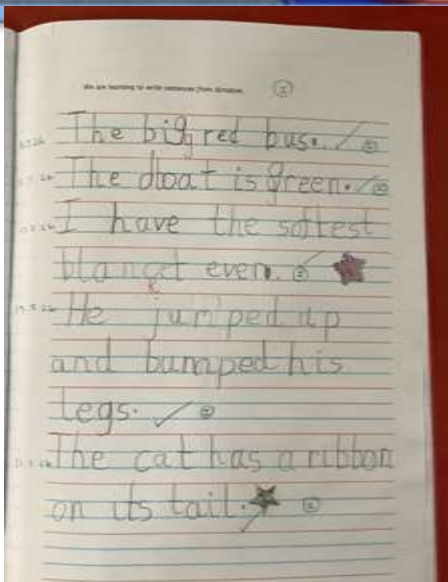 We are learning to write sentences from dictation.
The big red bus.
The doat is green.
I have the softest
blancet ever.
k
He jumped up
and bumped his
legs.
The cat has a ribbon
on its tail.